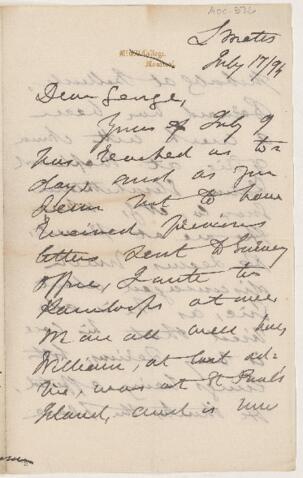 ADC-376
McGill College,
Montreal
L. Metis
July 17/94
Dear George,
Yours of July 9
has reached us to-
day and as you
seem not to have
received previous
letters sent to Survey
office, I write to
Kamloops at once
We are all well here
William, at last ad-
vice, was at St Paul's
Island, and is now